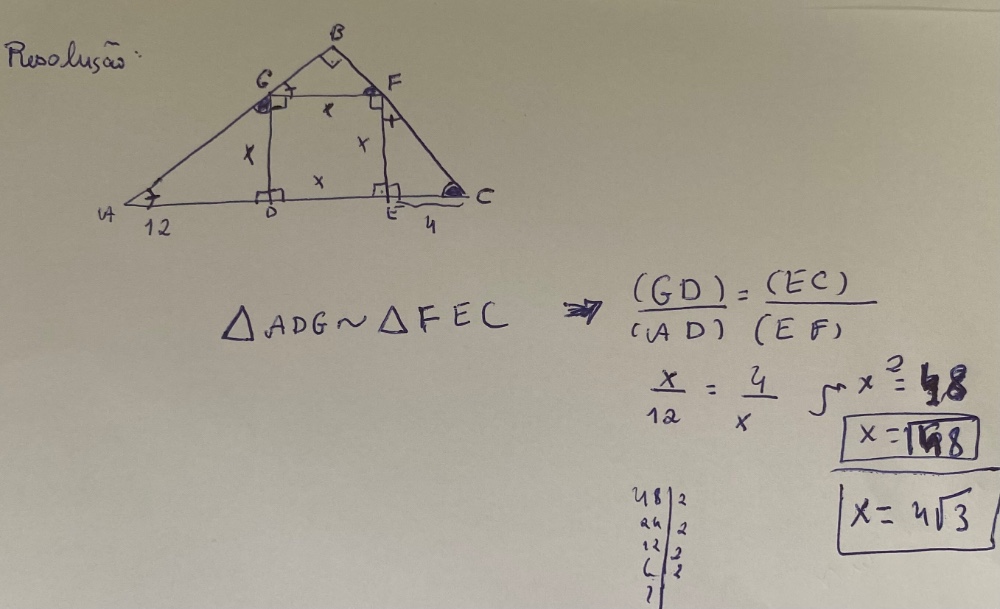 Resolução:
B
G F
x
x x
x
A D E C
12 4
△ADG ~ △FEC ⇒ (GD)/(AD) = (EC)/(EF)
x/12 = 4/x x² = 48
x = √48
x = 4√3
48 | 2
24 | 2
12 | 2
6 | 2
3 |